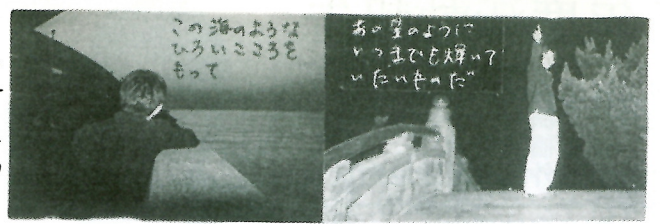 この海のような
ひろいこころを
もって
あの星のように
いつまでも輝いて
いたいものだ